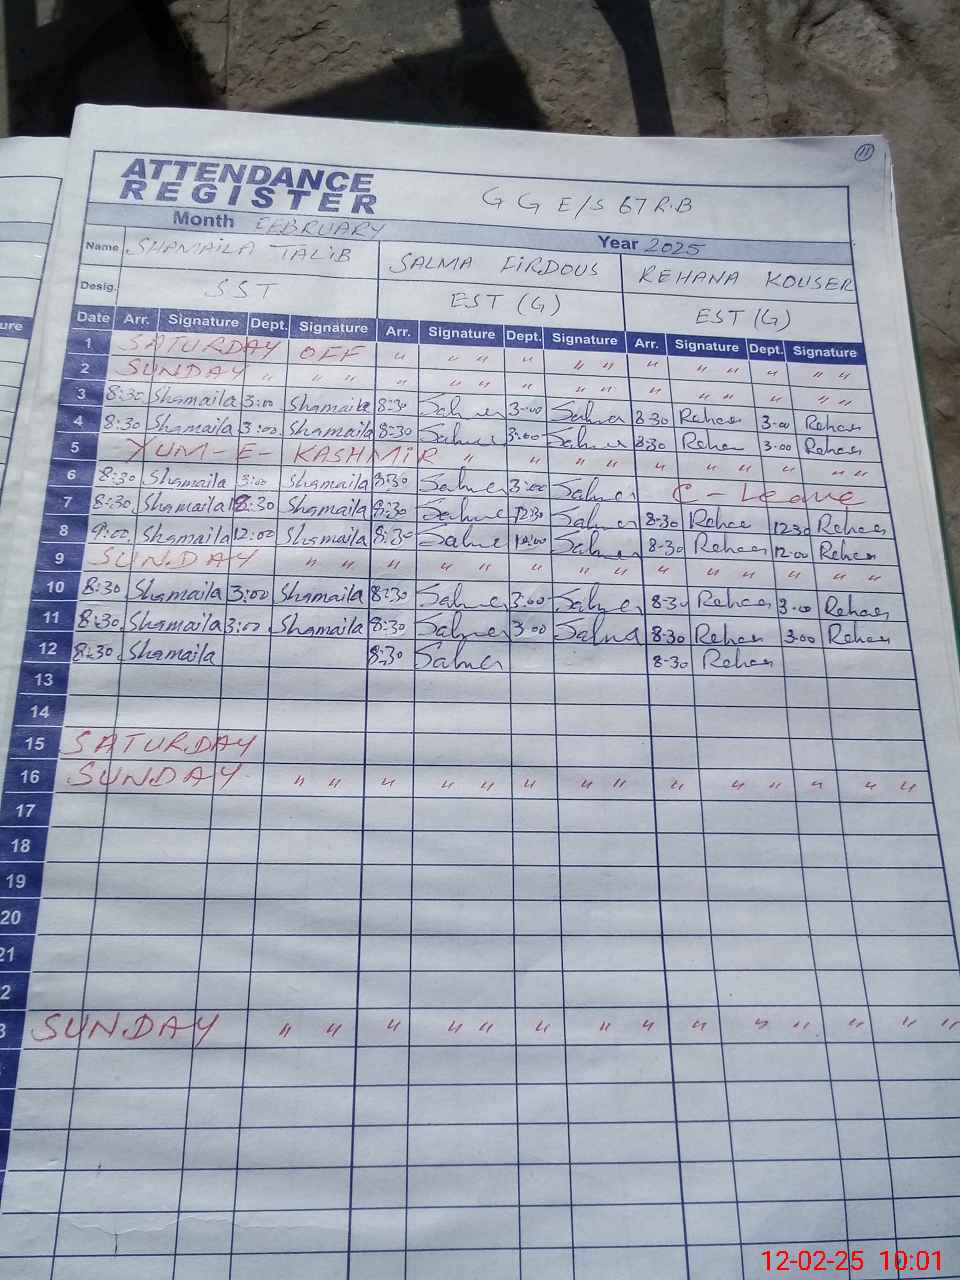 11
ATTENDANCE
REGISTER
G G E/S 67 R.B
Month FEBRUARY Year 2025
Name SHAMAILA TALIB SALMA FIRDOUS REHANA KOUSER
Desig. SST EST (G) EST (G)
ure Date Arr. Signature Dept. Signature Arr. Signature Dept. Signature Arr. Signature Dept. Signature
1 SATURDAY OFF " " " " " " " " " " "
2 SUNDAY " " " " " " " " " " " " "
3 8:30 Shamaila 3:00 Shamaila 8:30 Salma 3:00 Salma 8:30 Rehan 3:00 Rehan
4 8:30 Shamaila 3:00 Shamaila 8:30 Salma 3:00 Salma 8:30 Rehan 3:00 Rehan
5 YUM-E-KASHMIR " " " " " " " " " "
6 8:30 Shamaila 3:00 Shamaila 8:30 Salma 3:00 Salma C-Leave
7 8:30 Shamaila 12:30 Shamaila 8:30 Salma 12:30 Salma 8:30 Rehan 12:30 Rehan
8 9:00 Shamaila 12:00 Shamaila 8:30 Salma 12:00 Salma 8:30 Rehan 12:00 Rehan
9 SUNDAY " " " " " " " " " " " " " "
10 8:30 Shamaila 3:00 Shamaila 8:30 Salma 3:00 Salma 8:30 Rehan 3:00 Rehan
11 8:30 Shamaila 3:00 Shamaila 8:30 Salma 3:00 Salma 8:30 Rehan 3:00 Rehan
12 8:30 Shamaila 8:30 Salma 8:30 Rehan
13
14
15 SATURDAY
16 SUNDAY " " " " " " " " " " " " " "
17
18
19
20
21
2
3 SUNDAY " " " " " " " " " " " " " "
12-02-25 10:01